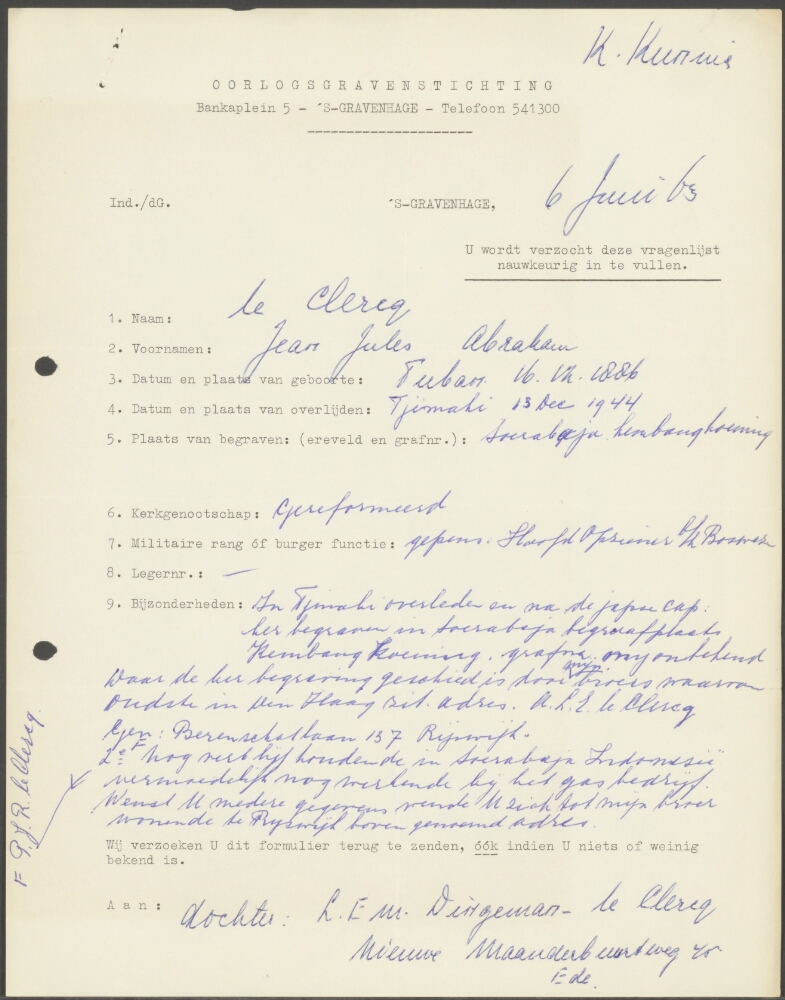 K. Kuornia
OORLOGSGRAVENSTICHTING
Bankaplein 5 - 'S-GRAVENHAGE - Telefoon 541300
Ind./dG.
'S-GRAVENHAGE, 6 Juni 63
U wordt verzocht deze vragenlijst
nauwkeurig in te vullen.
1. Naam: le Clercq
2. Voornamen: Jean Jules Abraham
3. Datum en plaats van geboorte: Tuban 16. 1886
4. Datum en plaats van overlijden: Tjimahi 13 Dec 1944
5. Plaats van begraven: (ereveld en grafnr.): Soerabaja. Kembangkoening
6. Kerkgenootschap: Gereformeerd
7. Militaire rang óf burger functie: gepens. Hoofd Opziener Boswezen
8. Legernr.: —
9. Bijzonderheden: In Tjimahi overleden en na de japse cap:
her begraven in Soerabaja begraafplaats
Kembang Koening. grafnr. onbekend
Daar de her begraving geschied is door mijn broers waarvan
oudste in Den Haag zit. adres. A. L. E. le Clercq
Gen: Berenschotlaan 157 Rijswijk.
2e F nog verblijf houdende in Soerabaja Indonesië
vermoedelijk nog werkende bij het gasbedrijf.
Wenst U nadere gegevens wende U zich tot mijn broer
wonende te Rijswijk boven genoemd adres.
F P. J. R. le Clercq.
Wij verzoeken U dit formulier terug te zenden, óók indien U niets of weinig
bekend is.
Aan: dochter: L. E. M. Dingeman - le Clercq
Nieuwe Maanderbuurtweg
Ede.